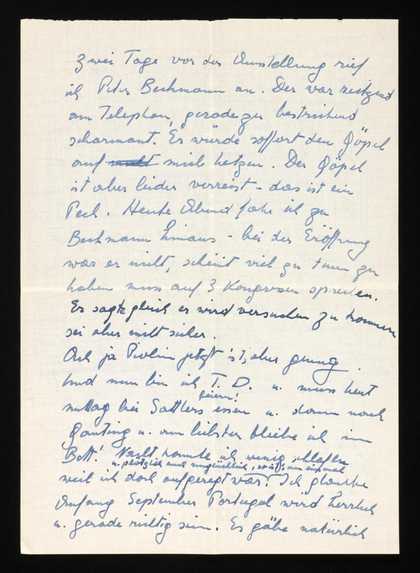 zwei Tage vor der Ausstellung rief
ich Peter Beckmann an. Der war reizend
am Telephon, geradezu bestrickend
scharmant. Er würde sofort den Göpel
auf mich hetzen. Der Göpel
ist aber leider verreist - das ist ein
Pech. Heute Abend fahre ich zu
Beckmann hinaus - bei der Eröffnung
war er nicht, scheint viel zu tuen zu
haben muss auf 3 Kongressen sprechen.
Er sagte gleich er wird versuchen zu kommen
sei aber nicht sicher.
Ach ja jetzt ist, aber genug.
Und nun bin ich T. D. u. muss heut
mittag bei Sattlers essen u. dann nach
Gauting u. am liebsten bliebe ich im
Bett! Nacht konnte ich wenig schlafen
u. plötzlich
weil ich doch aufgeregt war! Ich glaube
Anfang September Portugal wird herrlich
u. gerade richtig sein. Es gäbe natürlich